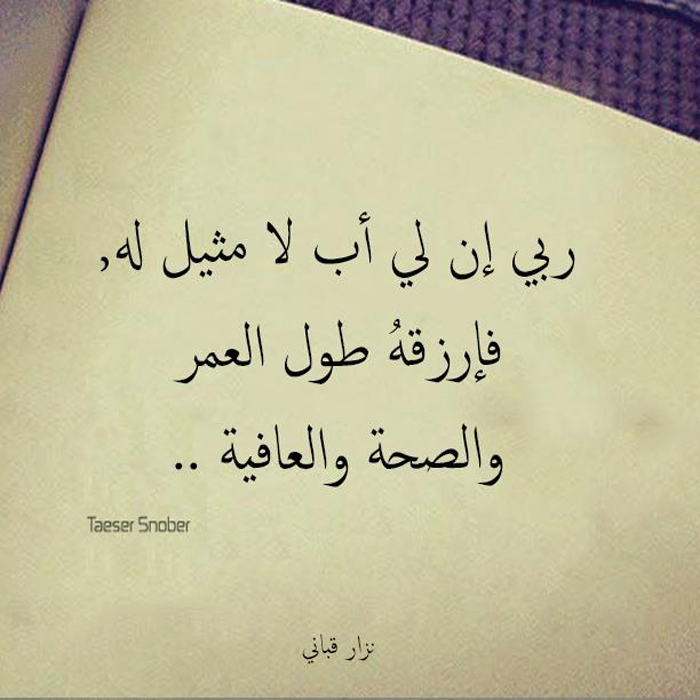 ربي إن لي أب لا مثيل له,
فإرزقهُ طول العمر
والصحة والعافية ..
Taeser Snober
نزار قباني